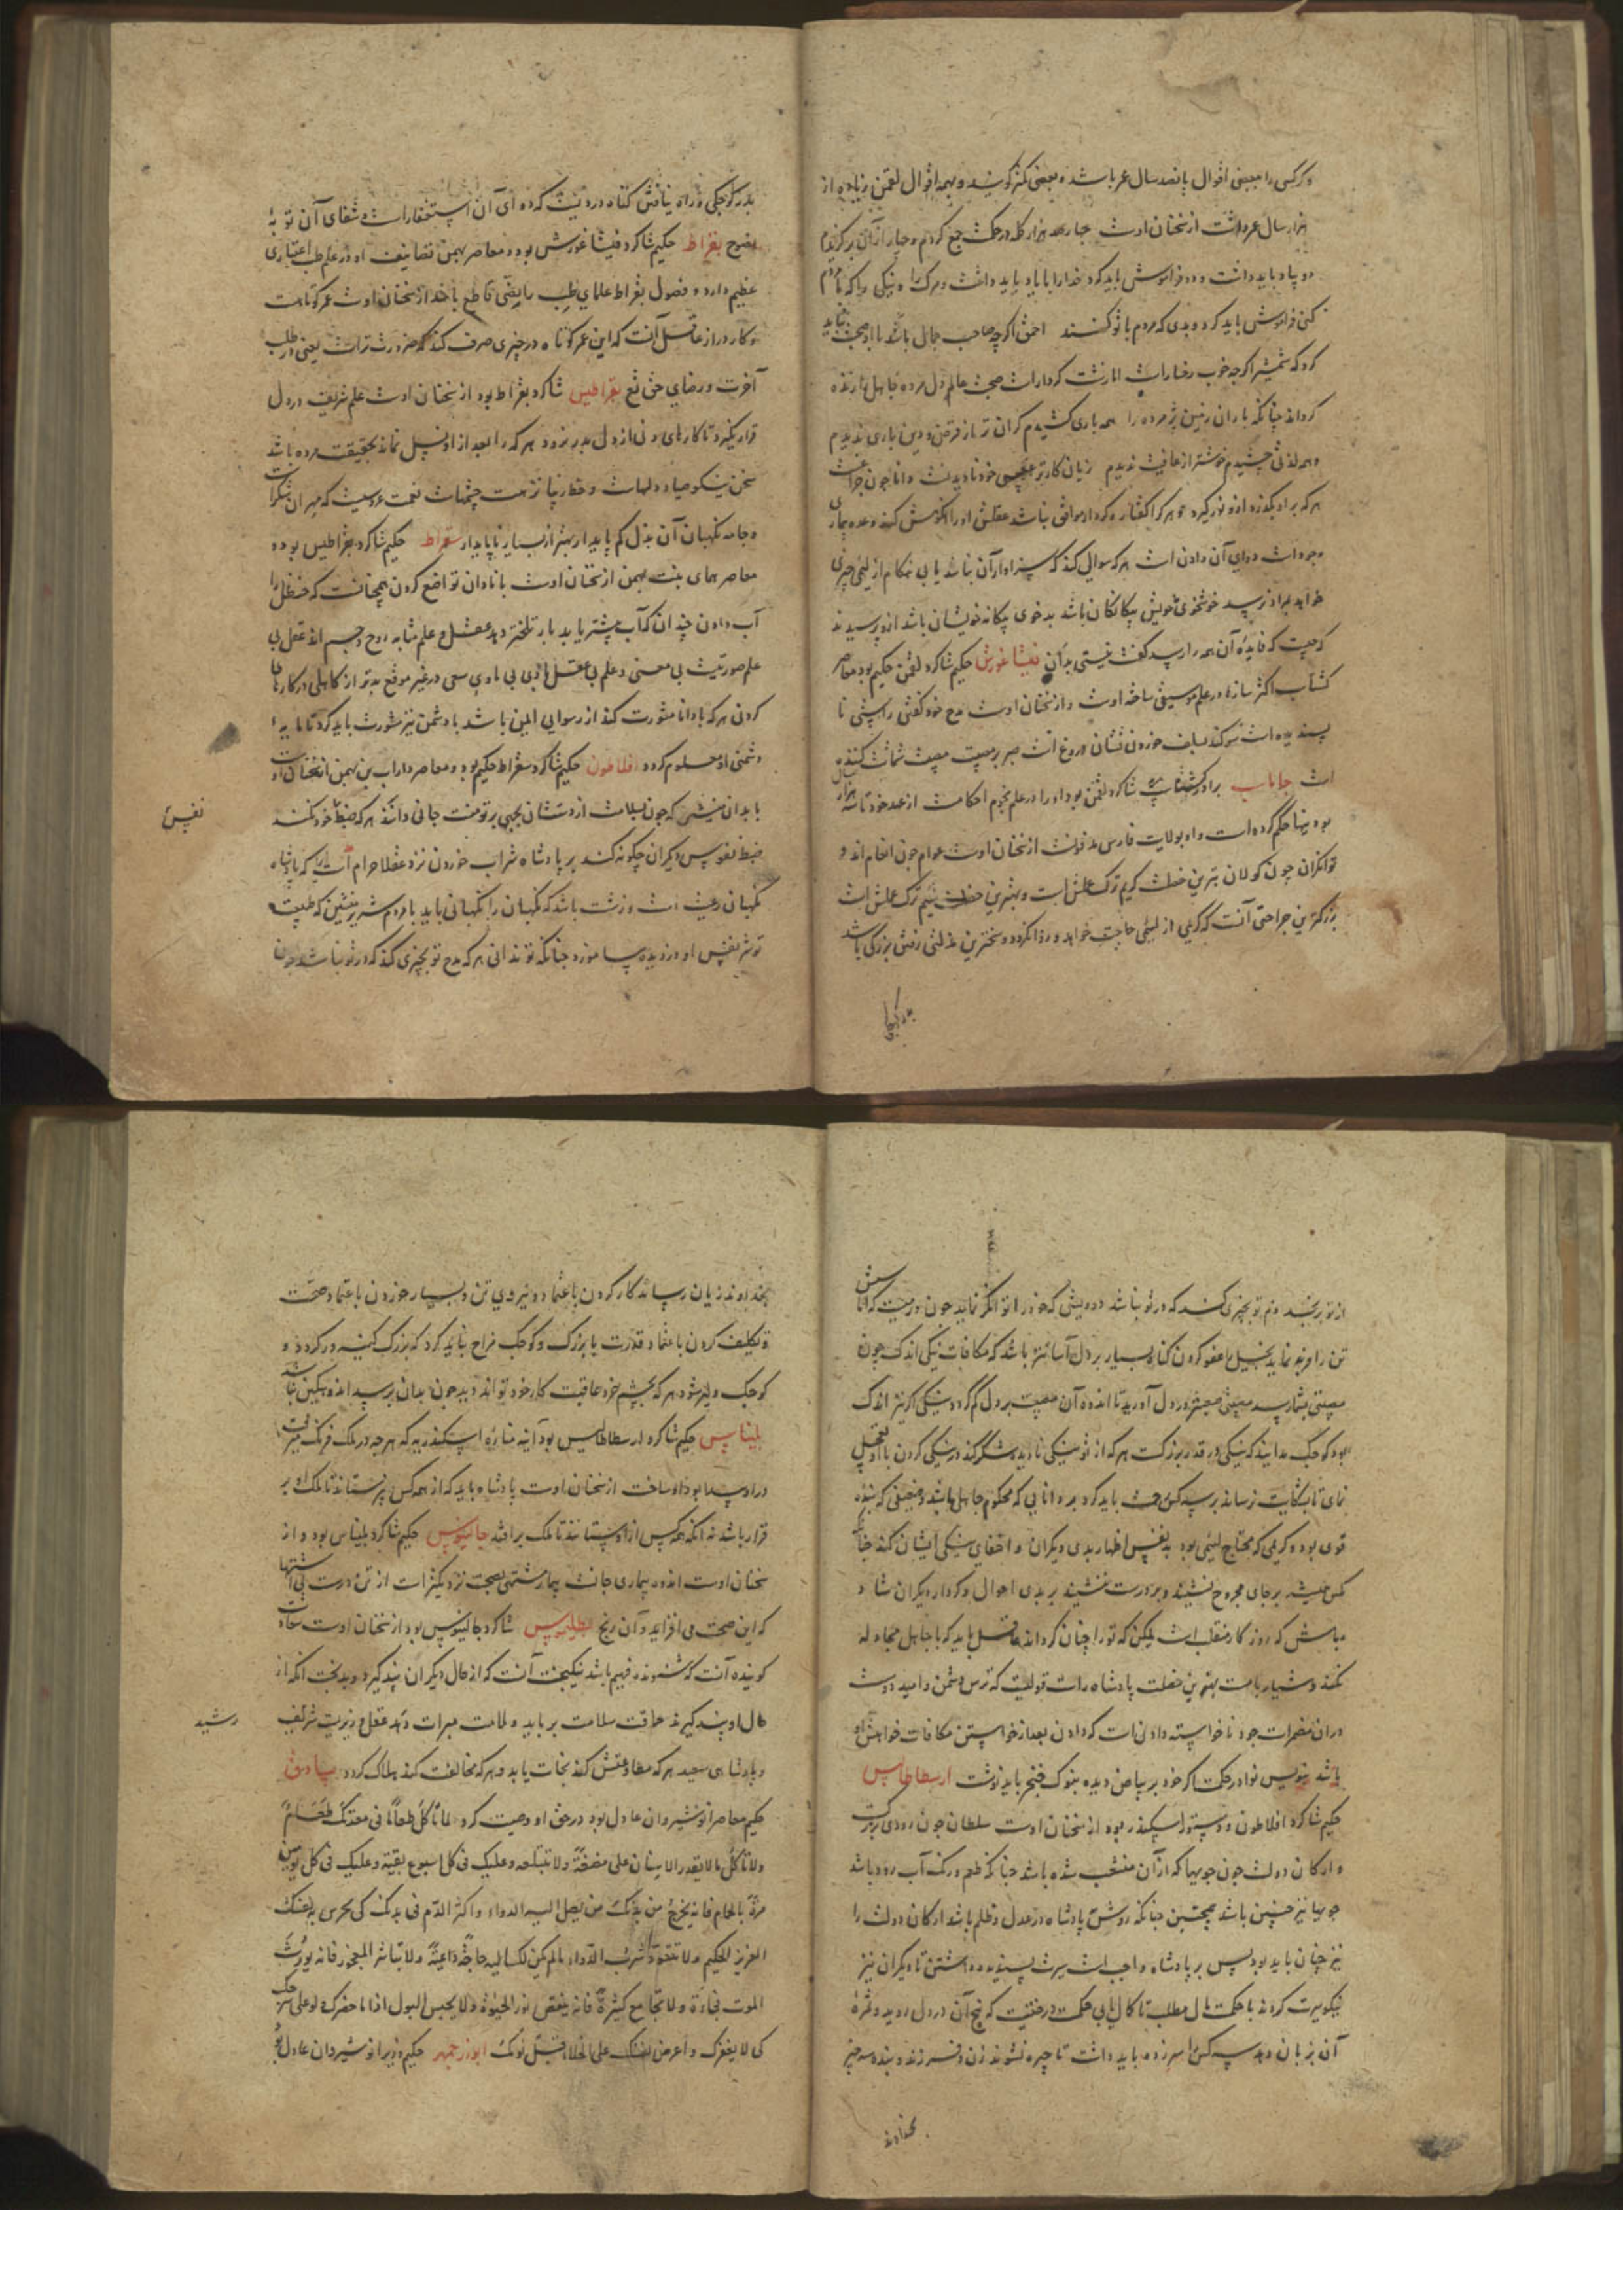 و کرکس را ببعضی اقوال پانصد سال عمر باشد و بعضی کمتر گویند و بهمه اقوال لقمن زیاده از
هزار سال عمر داشت از سخنان اوست چهارصد هزار کلمه در حکمت جمع کردم و چهار از آن برگزیدم
دو یاد باید داشت و دو فراموش باید کرد خدا را باید داشت و مرگ را و نیکی را که با مردم
کنی فراموش باید کرد و بدی که مردم با تو کنند احمق اگرچه صاحب جمال باشد با او صحبت نباید
کرد که شمشیر اگرچه خوب رخسارست اما زشت کردارست صحبت عالم دل مرده جاهل را زنده
کرداند چنانکه باران زمین پژمرده را همه باری کشیدم گران تر از قرض و دین باری ندیدم
و همه لذتی چشیدم خوشتر از عافیت ندیدم زیان کارتر خود نادیدنست و دانا چون چراغست
هر که بر او بگذرد ازو نور گیرد و هر کرا گفتار و کردار موافق نباشد عقلش او را نکوهش کند وعده بیماری
وجودست دوای آن دادن است هر که سوالی کند که سزاوار آن نباشد یا بی هنگام از لئیمی چیزی
خواهد بمراد نرسد خوشخوی خویش بیگانگان باشد بدخوی بیگانه خویشان باشد ازو پرسیدند
که چیست که فایده آن همه را رسد گفت نیستی بدان فیثاغورش حکیم شاگرد لقمن حکیم بود معاصر
کشتاسب اکثر سازها در علم موسیقی ساخته اوست و از سخنان اوست مدح خود گفتن راستی نا
پسندیده است سوگند بسیار خوردن نشان دروغ است صبر بر مصیبت مصیبت شماتت کننده
است جاماسب برادر کشتاسب شاگرد لقمن بود او را در علم نجوم احکامست از عهد خود تا سه هزار سال
بوده بینها حکم کرده است و او بولایت فارس مدفونست از سخنان اوست عوام چون انعام اند و
توانگران چون گولان بدترین خصلت کریم ترک عطاش است و بهترین خصلت لئیم ترک عطاش است
بزرگترین جراحتی آنست که کریمی از لئیمی حاجت خواهد و روا نگردد و سختترین مذلتی رفتن بزرگی باشد
بدر کوچکی
بدر کوچکی و راه نیافتن گناه دردیست که دوای آن استغفارست و شفای آن توبه
نصوح بقراط حکیم شاگرد فیثاغورش بود و معاصر بهمن تصانیف او در علم طب اعتباری
عظیم دارد و فصول بقراط علمای طب را نصی قاطع باشد از سخنان اوست عمر کوتاهست
و کار دراز عاقل آنست که این عمر کوتاه در چیزی صرف کند که ضرورت تراست یعنی در طلب
آخرت و رضای حق تع بقراطیس شاگرد بقراط بود از سخنان اوست علم شریف در دل
قرار نگیرد تا کارهای دنی از دل بدر نرود هر که را بعد از او نسل نماند بحقیقت مرده باشد
سخن نیکو صیاد دلهاست و خط زیبا نزهت چشمهاست نعمت عروسیست که مهر آن شکرست
و جامه نگهبان آن بذل کم پایدار بهتر از بسیار ناپایدار سقراط حکیم شاگرد بقراطیس بوده
معاصر همای بنت بهمن از سخنان اوست با نادان تواضع کردن همچنانست که حنظل را
آب دادن چندان که آب بیشتر یابد بار تلختر دهد عقل و علم مشابه روح و جسم اند عقل بی
علم صورتیست بی معنی و علم بی عقل بی ماوی سعی در غیر موقع بدتر از کاهلی در کارهای
کردن هر که با دانا مشورت کند از رسوایی ایمن باشد با دشمن نیز مشورت باید کرد تا مایه
دشمنی او معلوم گردد افلاطون حکیم شاگرد سقراط حکیم بود و معاصر داراب بن بهمن از سخنان اوست
با بدان منشین که چون بسلامت از دستشان بجهی بر تو منت جانی دانند هر که ضبط خود نکند
ضبط نفوس دیگران چگونه کند بر پادشاه شراب خوردن نزد عقلا حرام است زیرا که پادشاه
نگهبان رعیت است و زشت باشد که نگهبان را نگهبانی باید با مردم شریر منشین که طبیعت
تو شر نفس او دزدیده بیاموزد چنانکه تو ندانی هر که مدح تو بچیزی کند که در تو نباشد چون
نفیس
از تو برنجد ذم تو بچیزی کند که در تو نباشد درویشی که خود را توانگر نماید چون ورمیست که اماسش
تن را فربه نماید بخیل را عفو کردن گناه بسیار بر دل آسانتر باشد که مکافات نیکی اندک چون
مصیبتی بشما رسد مصیبتی صعبتر در دل آورید تا اندوه آن مصیبت بر دل کم گردد نیکی اگر نیز اندک
بود کوچک مدانید که نیکی در قدر بزرگست هر که از تو نیکی نادیده شکر کند در نیکی کردن با او تعجیل
نمای تا بشکایت نرساند بر سه کس رحمت باید کرد بر دانایی که محکوم جاهل باشد و ضعیفی که بنده
قوی بود و کریمی که محتاج لئیمی بود بد نفس اظهار بدی دیگران و اخفای نیکی ایشان کند چنانکه
مگس همیشه بر جای مجروح نشیند و بر درست ننشیند بر بدی احوال و کردار دیگران شاد
مباش که روزگار منقلب است ممکن که تو را چنان گرداند عاقل باید که با جاهل مجادله
نکند و شیار با مست بهترین خصلت پادشاه راست قولیست که ترس دشمن و امید دوست
در آن مضمرست جود ناخواسته دادن است که دادن بعد از خواستن مکافات خواهش او
باشد بنویس نوادر حکمت اگر خود بر بیاض دیده بنوک خنجر باید نوشت ارسطاطالیس
حکیم شاگرد افلاطون و دستور اسکندر بود از سخنان اوست سلطان چون رودی بزرگست
و ارکان دولت چون جویها که از آن منشعب شده باشد چنانکه طعم و رنگ آب رود باشد
جویها نیز چنین باشد همچنین چنانکه روش پادشاه در عدل و ظلم باشد ارکان دولت را
نیز چنان باید بود پس بر پادشاه واجب است سیرت پسندیده داشتن تا دیگران نیز
نیکوسیرت گردند با حکمت مال مطلب تا کمال یابی حکمت درختیست که بیخ آن در دل روید و ثمره
آن بزبان دهد سه کس را سرزده باید داشت تا چیره نشوند زن و فرزند و بنده سه چیز
بخداوند
بخداوند زیان رساند کار کردن باعتماد و نیروی تن و بسیار خوردن باعتماد صحت
و تکلیف کردن باعتماد قدرت با بزرگ و کوچک مزاح نباید کرد که بزرگ کینه ور گردد و
کوچک دلیر شود هر که بچشم خرد عاقبت کار خود تواند دید چون بدان برسد اندوهگین نباشد
بلیناس حکیم شاگرد ارسطاطالیس بود آینه مناره اسکندریه که هر چه در ملک فرنگ میرفت
در او پیدا بود او ساخت از سخنان اوست پادشاه باید که از همه کس نپرستاند تا ملک او بر
قرار باشد نه آنکه همه کس از او ستانند تا ملک برافتد جالینوس حکیم شاگرد بلیناس بود و از
سخنان اوست اندوه بیماری جانست بیمار مشتهی بصحت نزدیکترست از تن درست بی اشتها
که این صحت می افزاید و آن رنج بطلیموس شاگرد جالینوس بود از سخنان اوست سعادت
گوینده آنست که شنونده فهیم باشد نیکبخت آنست که از حال دیگران پند گیرد و بدبخت آنکه از
حال او پند گیرند حماقت سلامت برباید و ملامت میراث دهد عقل وزیریست شریف
و پادشاهی سعید هر که مطاوعتش کند نجات یابد و هر که مخالفت کند هلاک گردد بیادوق
حکیم معاصر انوشیروان عادل بود در حق او وصیت کرد لا تأکل طعاما فی معدتک طعام
ولا تأکل ما لا یقدر الاسنان علی مضغه ولا تبتلعه وعلیک فی کل اسبوع بقیئة وعلیک فی کل یومین
مرة بالحمام فانه یخرج من بدنک من یصل الیه الدواء واکثر الدم فی بدنک کی یحرس به نفسک
العزیز الحکیم ولا تتقوه شرب الدواء ما لم یکن لک الیه حاجة داعیة ولا تباشر العجوز فانه یورث
الموت فجاءة ولا تجامع کثیرة فانه ینقص نور الحیوة ولا یحبس البول اذا ما حضرک ولو علی سرجک
کی لا یضرک واعرض نفسک علی الخلاء قبل نومک ابوزرجمهر حکیم وزیر انوشیروان عادل بود
رشید